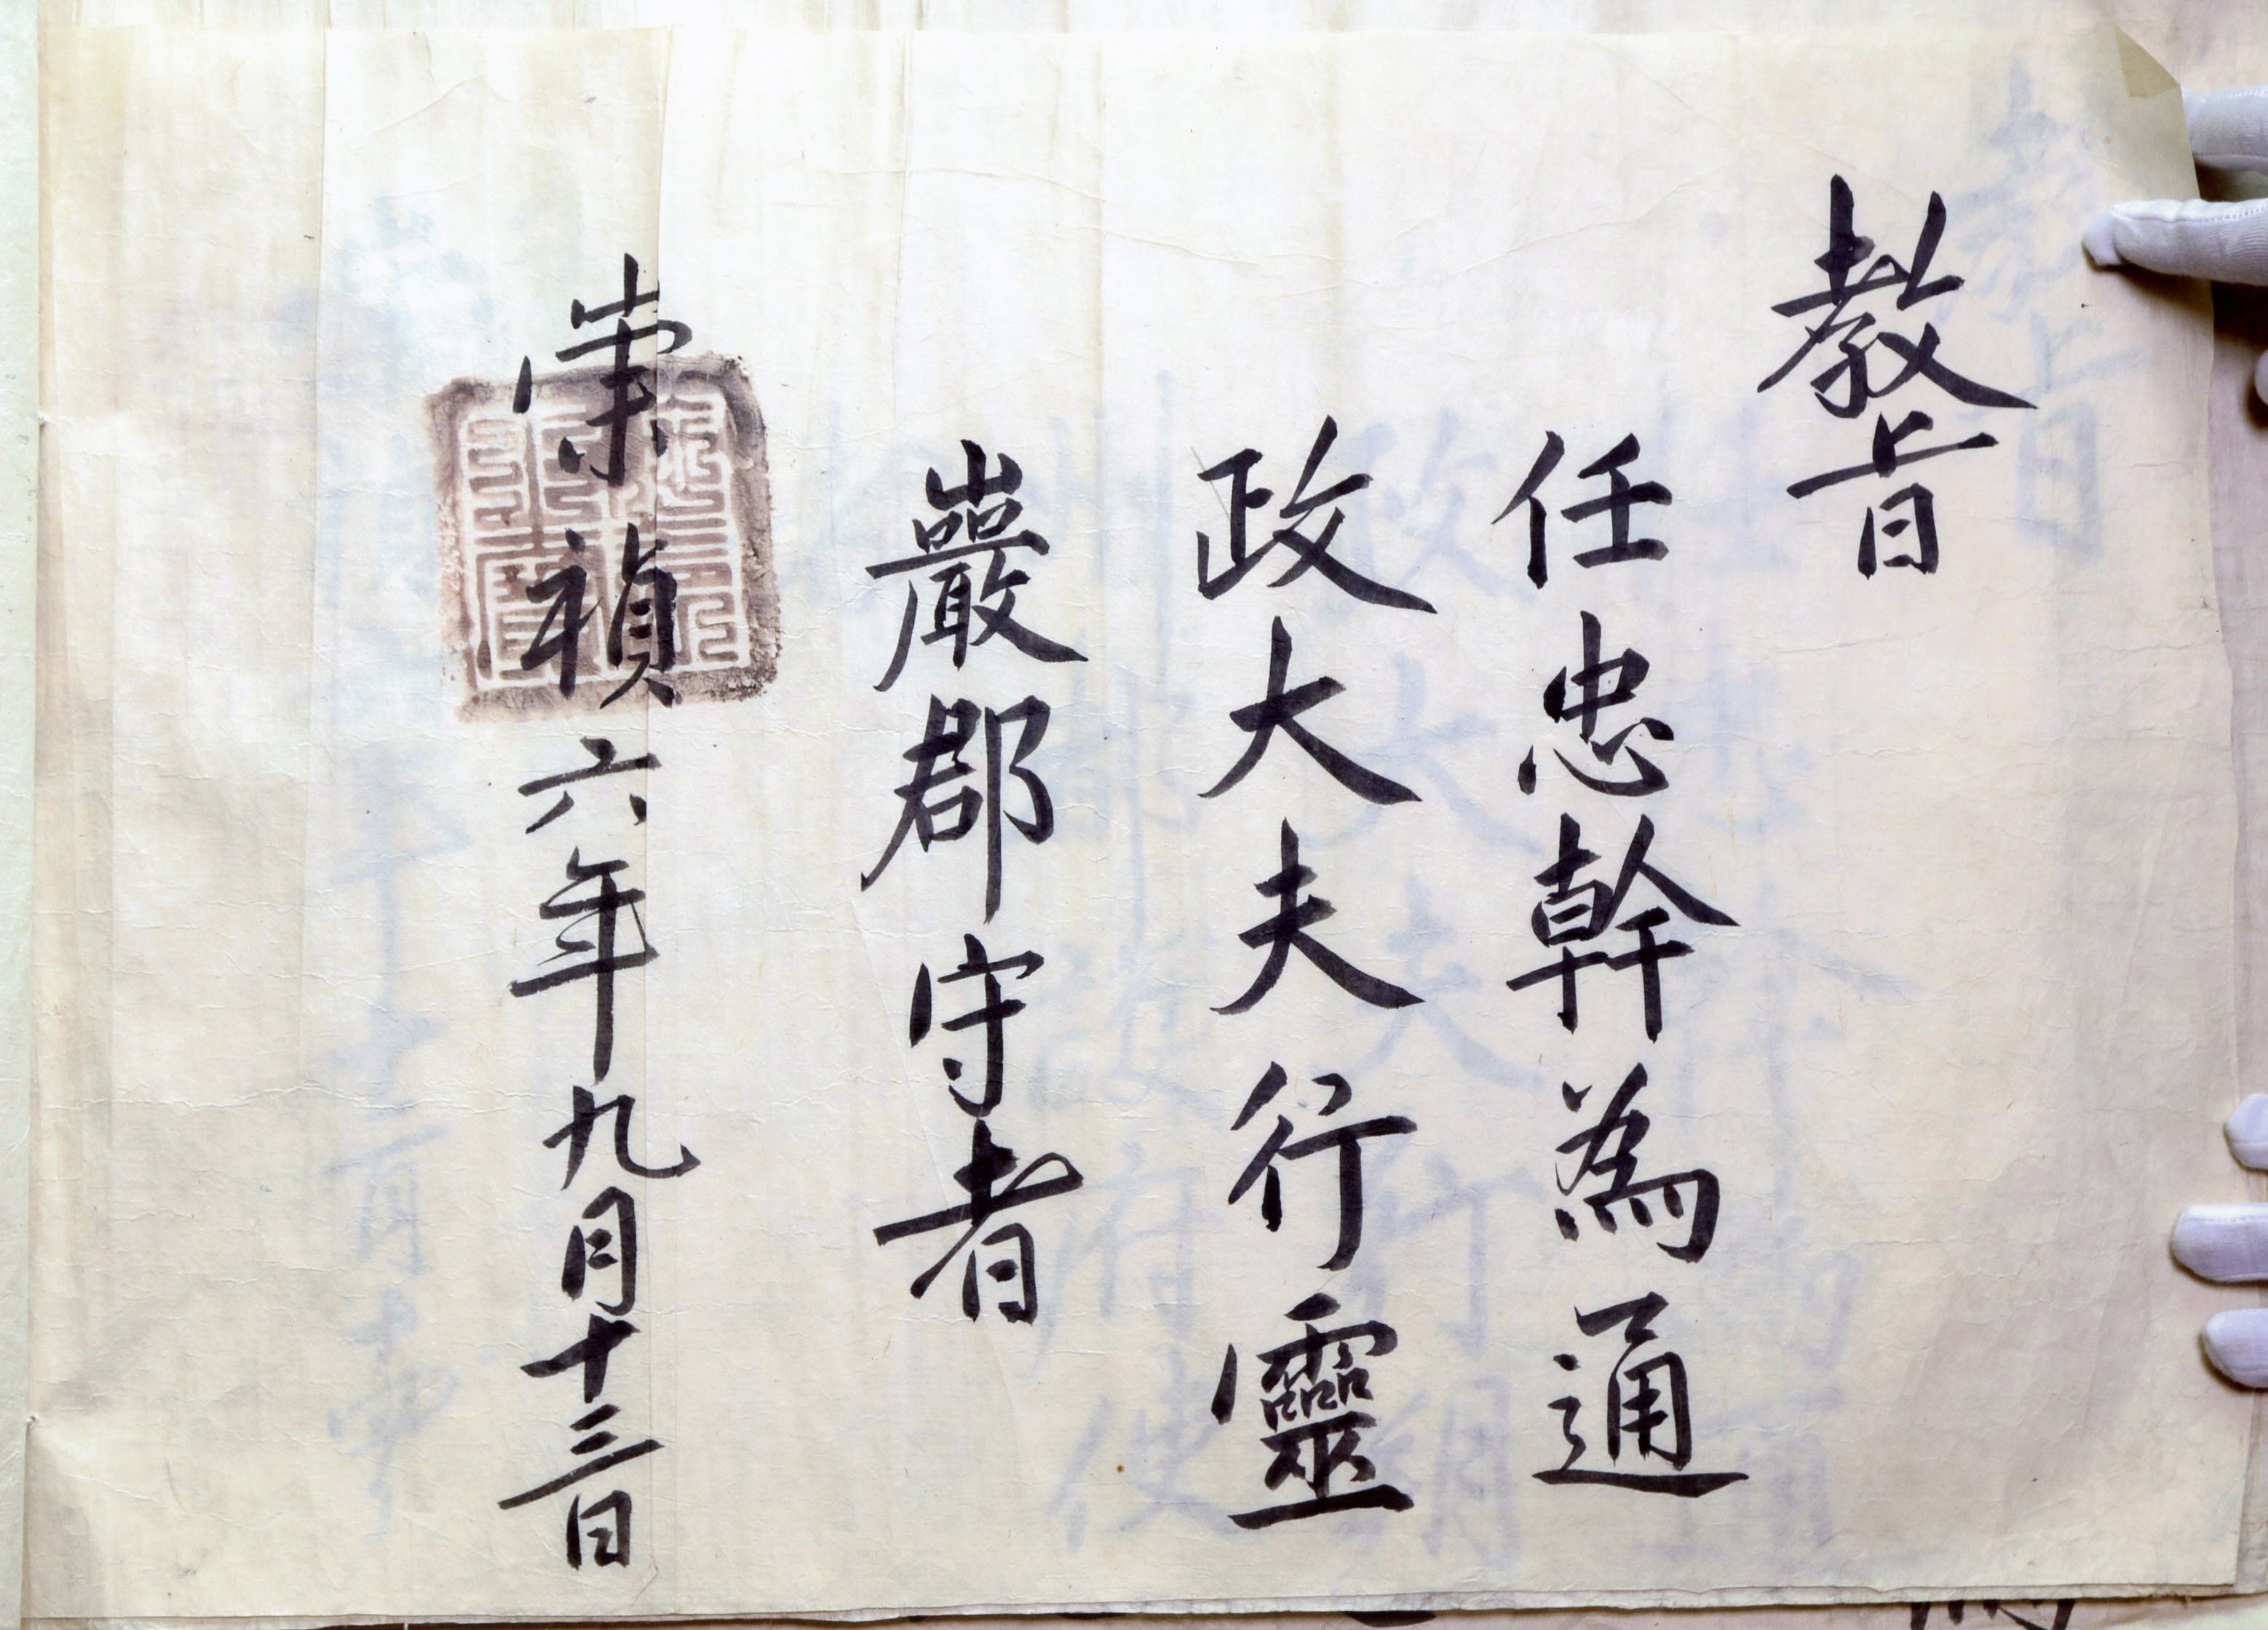 教旨
任忠幹為通
政大夫行靈
巖郡守者
崇禎六年九月十三日